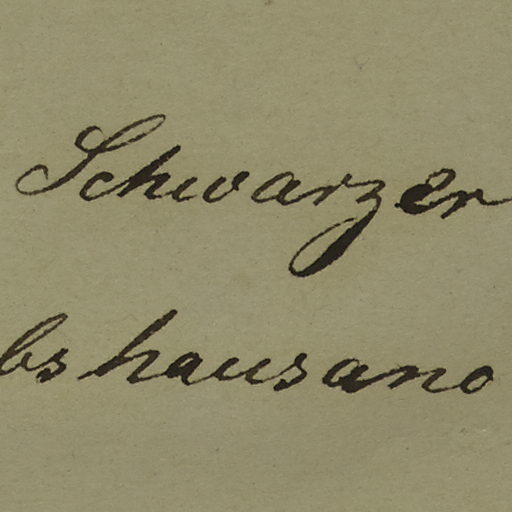 Schwarzer
bs hausano